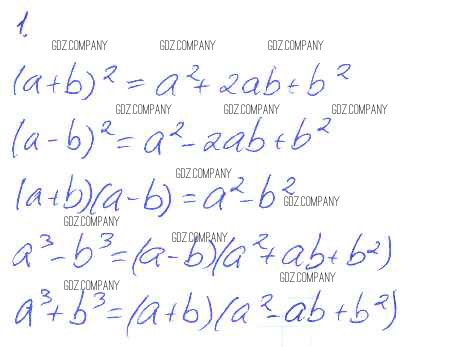 1.
GDZ.COMPANY GDZ.COMPANY GDZ.COMPANY
(a+b)² = a² + 2ab + b²
GDZ.COMPANY GDZ.COMPANY GDZ.COMPANY
(a-b)² = a² - 2ab + b²
GDZ.COMPANY
(a+b)(a-b) = a² - b²
GDZ.COMPANY
GDZ.COMPANY
a³ - b³ = (a-b)(a² + ab + b²)
GDZ.COMPANY
GDZ.COMPANY
GDZ.COMPANY
a³ + b³ = (a+b)(a² - ab + b²)